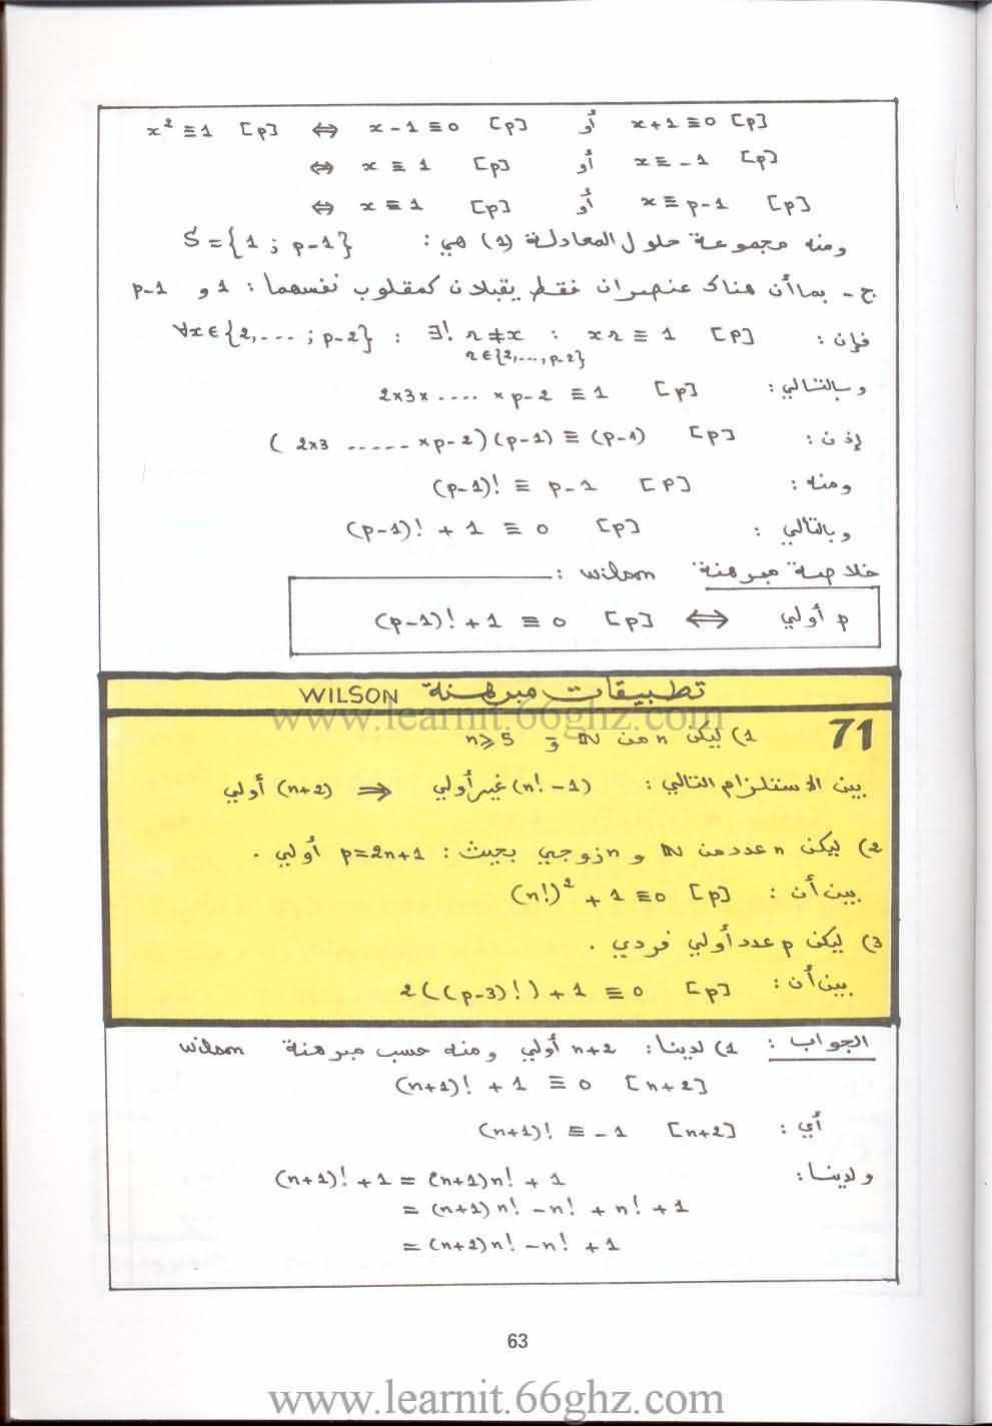 x² ≡ 1 [p] ⇔ x - 1 ≡ 0 [p] أو x + 1 ≡ 0 [p]
⇔ x ≡ 1 [p] أو x ≡ -1 [p]
⇔ x ≡ 1 [p] أو x ≡ p-1 [p]
ومنه مجموعة حلول المعادلة (1) هي : S = {1 ; p-1}
ج - بما أن هناك عنصران فقط يقبلان كمقلوب نفسهما : 1 و p-1
فإن : ∀x ∈ {2,... ; p-2} : ∃! r ≠ x : xr ≡ 1 [p]
r ∈ {2,...,p-2}
وبالتالي : 2x3x .... x p-2 ≡ 1 [p]
إذن : ( 2x3 ...... x p-2)(p-1) ≡ (p-1) [p]
ومنه : (p-1)! ≡ p-1 [p]
وبالتالي : (p-1)! + 1 ≡ 0 [p]
خلاصة مبرهنة wilson :
p أولي ⇔ (p-1)! + 1 ≡ 0 [p]
تطبيقات مبرهنة WILSON
71
1) ليكن n من ℕ و n ⩾ 5
بين الاستلزام التالي : (n! - 1) غير أولي ⇐ (n+2) أولي
2) ليكن n عدد من ℕ و n زوجي بحيث : p=2n+1 أولي .
بين أن : (n!)² + 1 ≡ 0 [p]
3) ليكن p عدد أولي فردي .
بين أن : 2((p-3)!) + 1 ≡ 0 [p]
الجواب : 1) لدينا : n+2 أولي ومنه حسب مبرهنة wilson
(n+1)! + 1 ≡ 0 [n+2]
أي : (n+1)! ≡ -1 [n+2]
ولدينا : (n+1)! + 1 = (n+1)n! + 1
= (n+1)n! - n! + n! + 1
= (n+2)n! - n! + 1
63
www.learnit.66ghz.com
www.learnit.66ghz.com